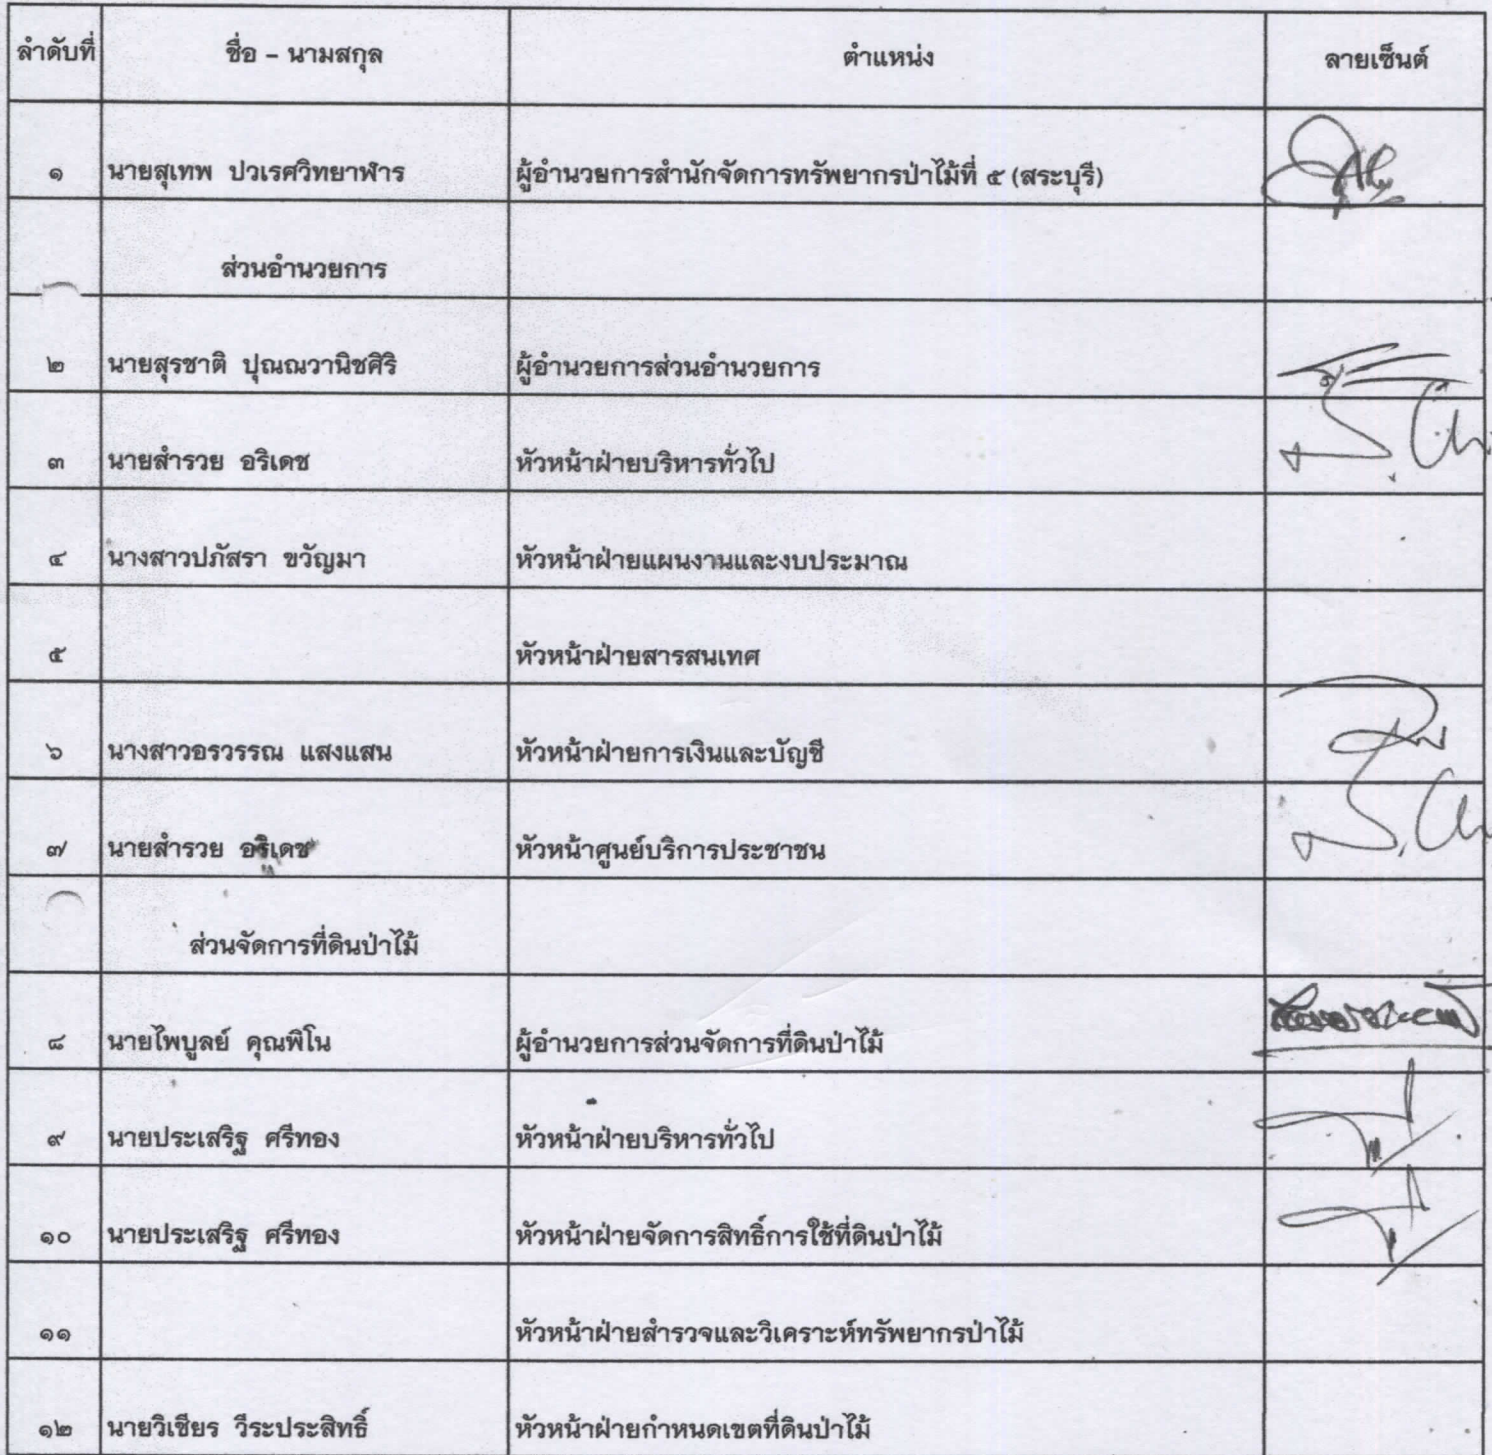 ลำดับที่ ชื่อ – นามสกุล ตำแหน่ง ลายเซ็นต์
๑ นายสุเทพ ปวเรศวิทยาฬาร ผู้อำนวยการสำนักจัดการทรัพยากรป่าไม้ที่ ๕ (สระบุรี)
ส่วนอำนวยการ
๒ นายสุรชาติ ปุณณวานิชศิริ ผู้อำนวยการส่วนอำนวยการ
๓ นายสำรวย อริเดช หัวหน้าฝ่ายบริหารทั่วไป
๔ นางสาวปภัสรา ขวัญมา หัวหน้าฝ่ายแผนงานและงบประมาณ
๕ หัวหน้าฝ่ายสารสนเทศ
๖ นางสาวอรวรรณ แสงแสน หัวหน้าฝ่ายการเงินและบัญชี
๗ นายสำรวย อริเดช หัวหน้าศูนย์บริการประชาชน
ส่วนจัดการที่ดินป่าไม้
๘ นายไพบูลย์ คุณพิโน ผู้อำนวยการส่วนจัดการที่ดินป่าไม้
๙ นายประเสริฐ ศรีทอง หัวหน้าฝ่ายบริหารทั่วไป
๑๐ นายประเสริฐ ศรีทอง หัวหน้าฝ่ายจัดการสิทธิ์การใช้ที่ดินป่าไม้
๑๑ หัวหน้าฝ่ายสำรวจและวิเคราะห์ทรัพยากรป่าไม้
๑๒ นายวิเชียร วีระประสิทธิ์ หัวหน้าฝ่ายกำหนดเขตที่ดินป่าไม้